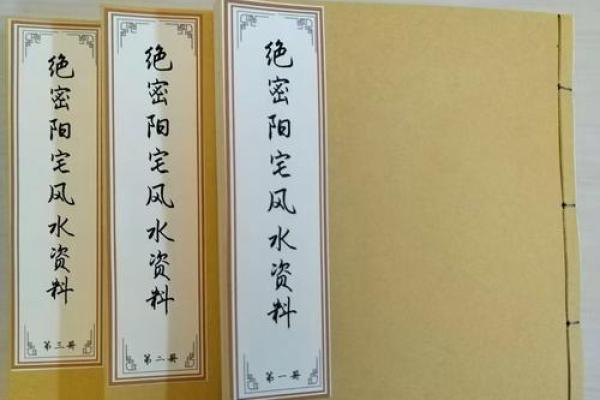 绝密阳宅风水资料
第三册
绝密阳宅风水资料
第二册
绝密阳宅风水资料
第一册